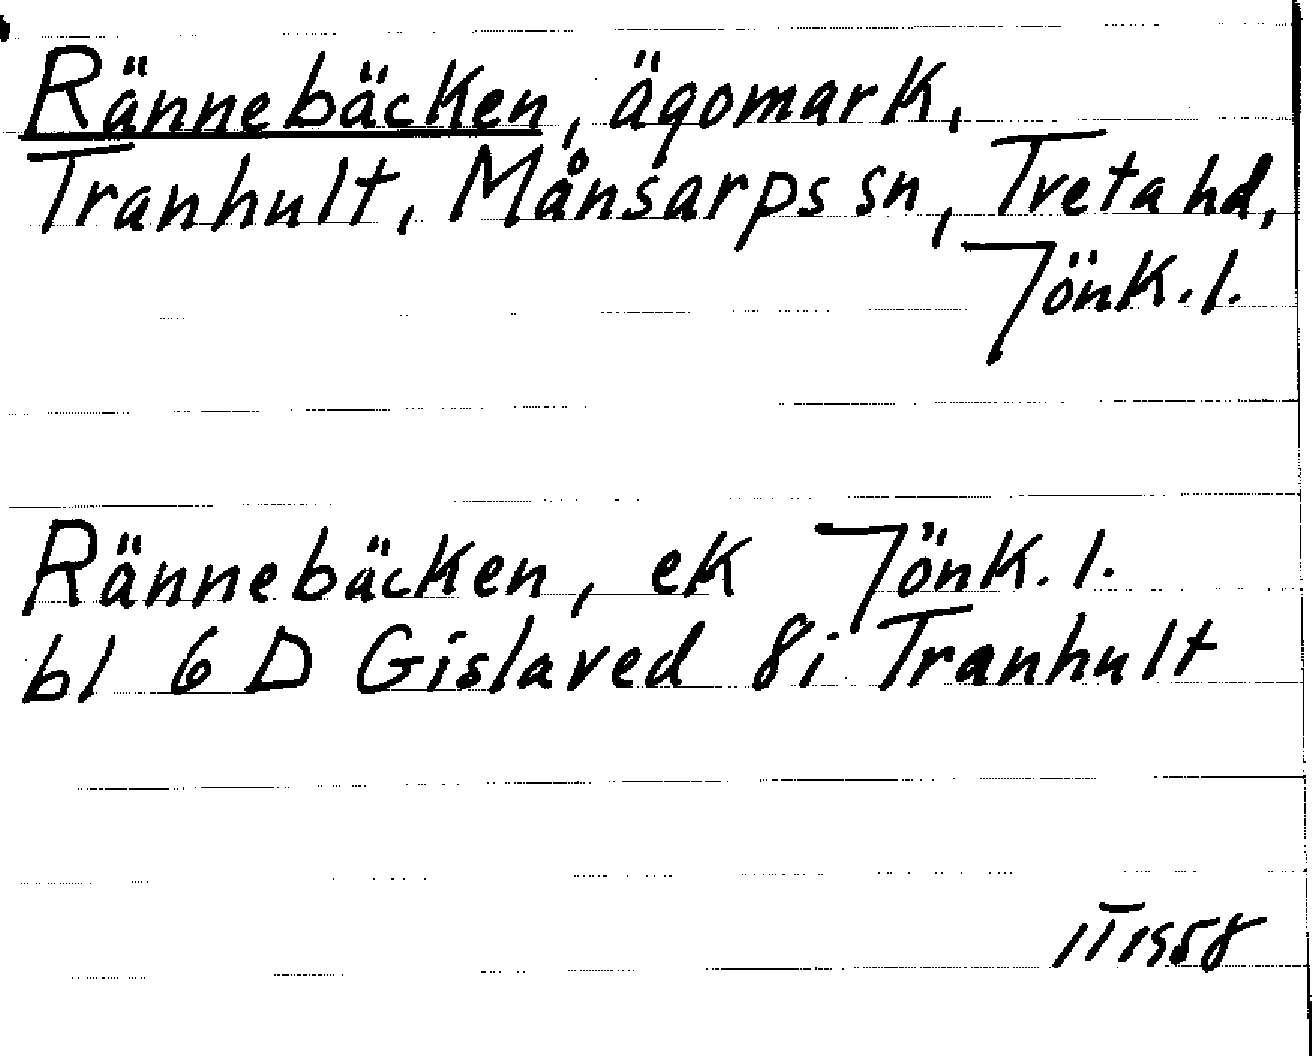 Rännebäcken, ägomark,
Tranhult, Månsarps sn, Tveta hd,
Jönk. l.
Rännebäcken, ek Jönk. l.
bl 6 D Gislaved 8i Tranhult
1958